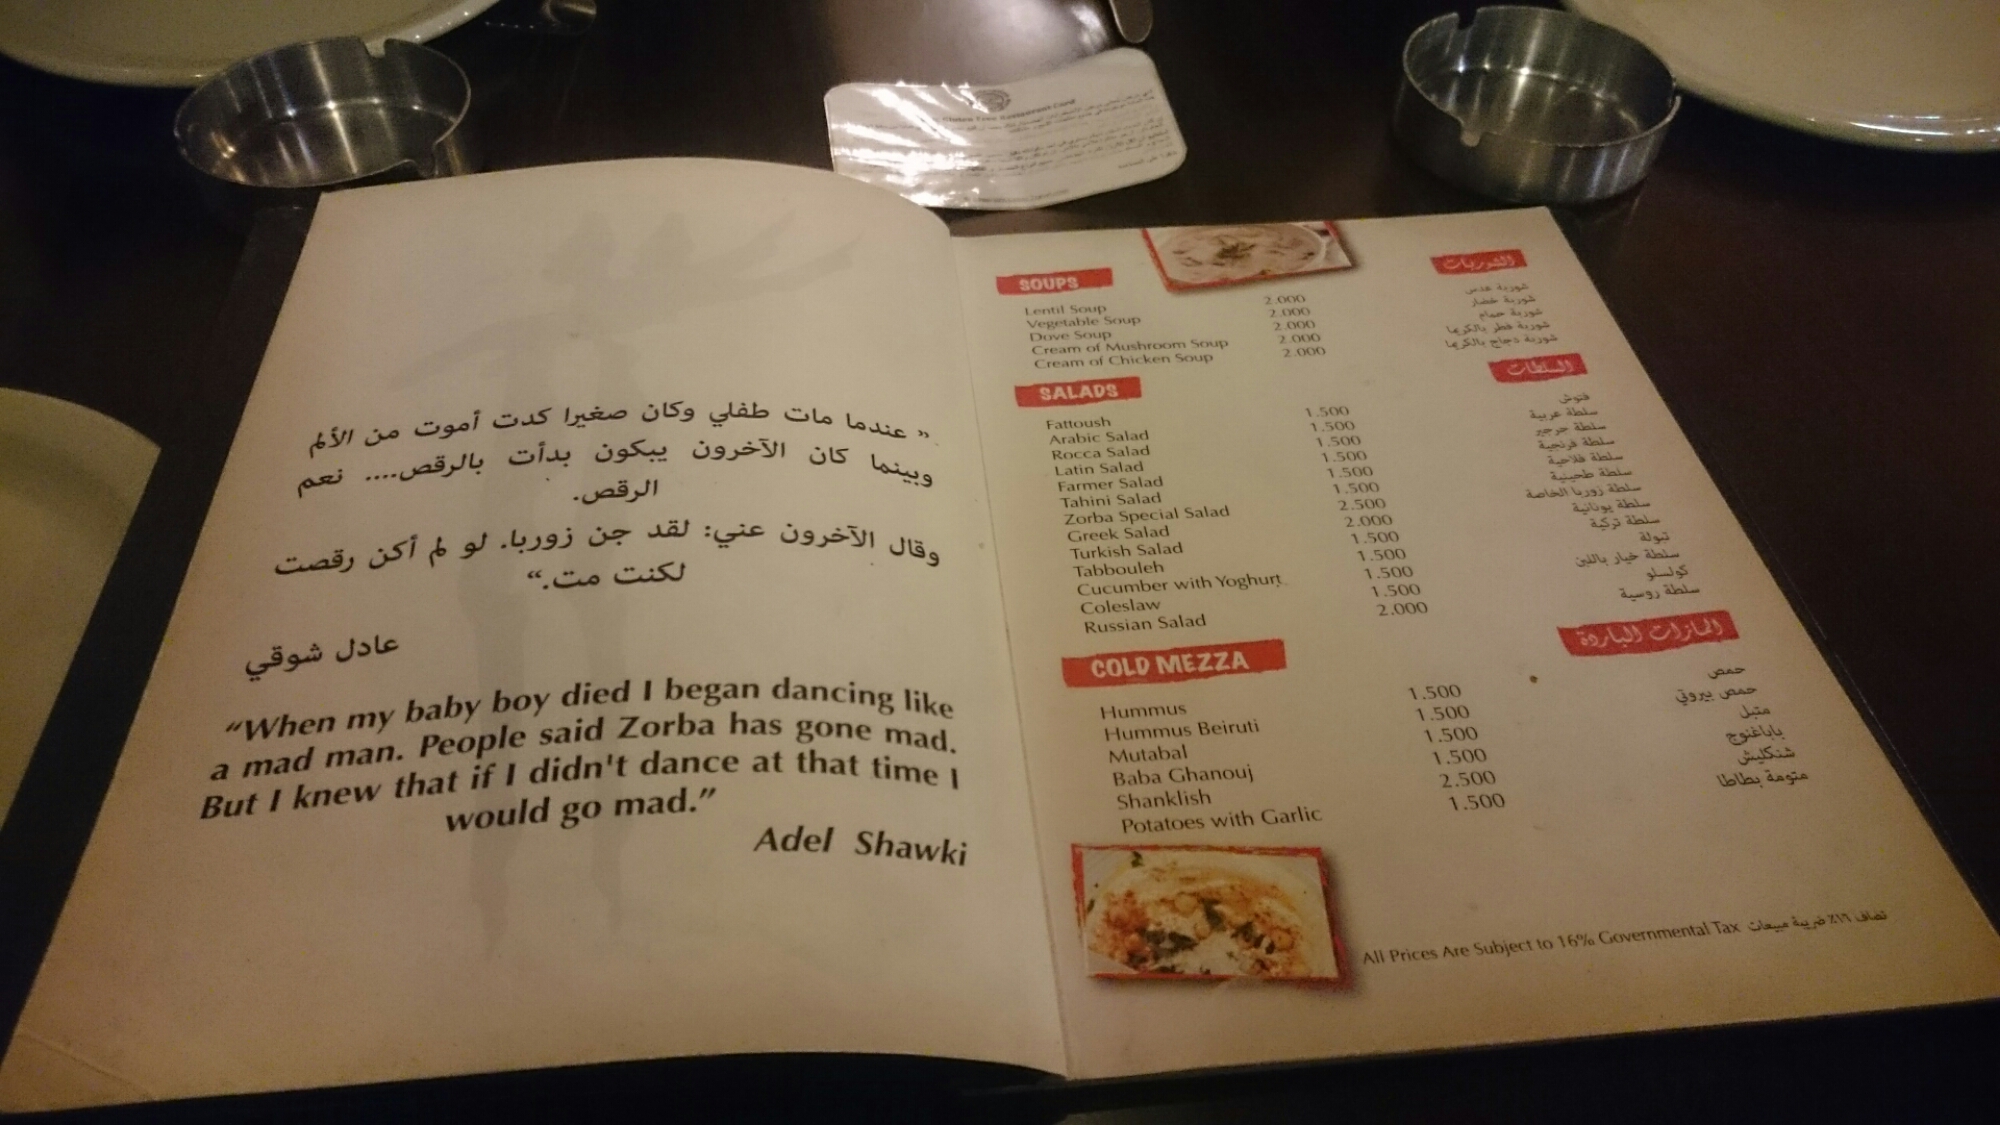 Gluten Free Restaurant Card
„ عندما مات طفلي وكان صغيرا كدت أموت من الألم
وبينما كان الآخرون يبكون بدأت بالرقص.... نعم
الرقص.
وقال الآخرون عني: لقد جن زوربا. لو لم أكن رقصت
لكنت مت.“
عادل شوقي
“When my baby boy died I began dancing like
a mad man. People said Zorba has gone mad.
But I knew that if I didn't dance at that time I
would go mad.”
Adel Shawki
SOUPS الشوربات
Lentil Soup 2.000 شوربة عدس
Vegetable Soup 2.000 شوربة خضار
Dove Soup 2.000 شوربة حمام
Cream of Mushroom Soup 2.000 شوربة فطر بالكريما
Cream of Chicken Soup 2.000 شوربة دجاج بالكريما
SALADS السلطات
Fattoush 1.500 فتوش
Arabic Salad 1.500 سلطة عربية
Rocca Salad 1.500 سلطة جرجير
Latin Salad 1.500 سلطة فرنجية
Farmer Salad 1.500 سلطة فلاحية
Tahini Salad 1.500 سلطة طحينية
Zorba Special Salad 2.500 سلطة زوربا الخاصة
Greek Salad 2.000 سلطة يونانية
Turkish Salad 1.500 سلطة تركية
Tabbouleh 1.500 تبولة
Cucumber with Yoghurt 1.500 سلطة خيار باللبن
Coleslaw 1.500 كولسلو
Russian Salad 2.000 سلطة روسية
COLD MEZZA المازات الباردة
Hummus 1.500 حمص
Hummus Beiruti 1.500 حمص بيروتي
Mutabal 1.500 متبل
Baba Ghanouj 1.500 باباغنوج
Shanklish 2.500 شنكليش
Potatoes with Garlic 1.500 متومة بطاطا
All Prices Are Subject to 16% Governmental Tax تضاف ١٦٪ ضريبة مبيعات